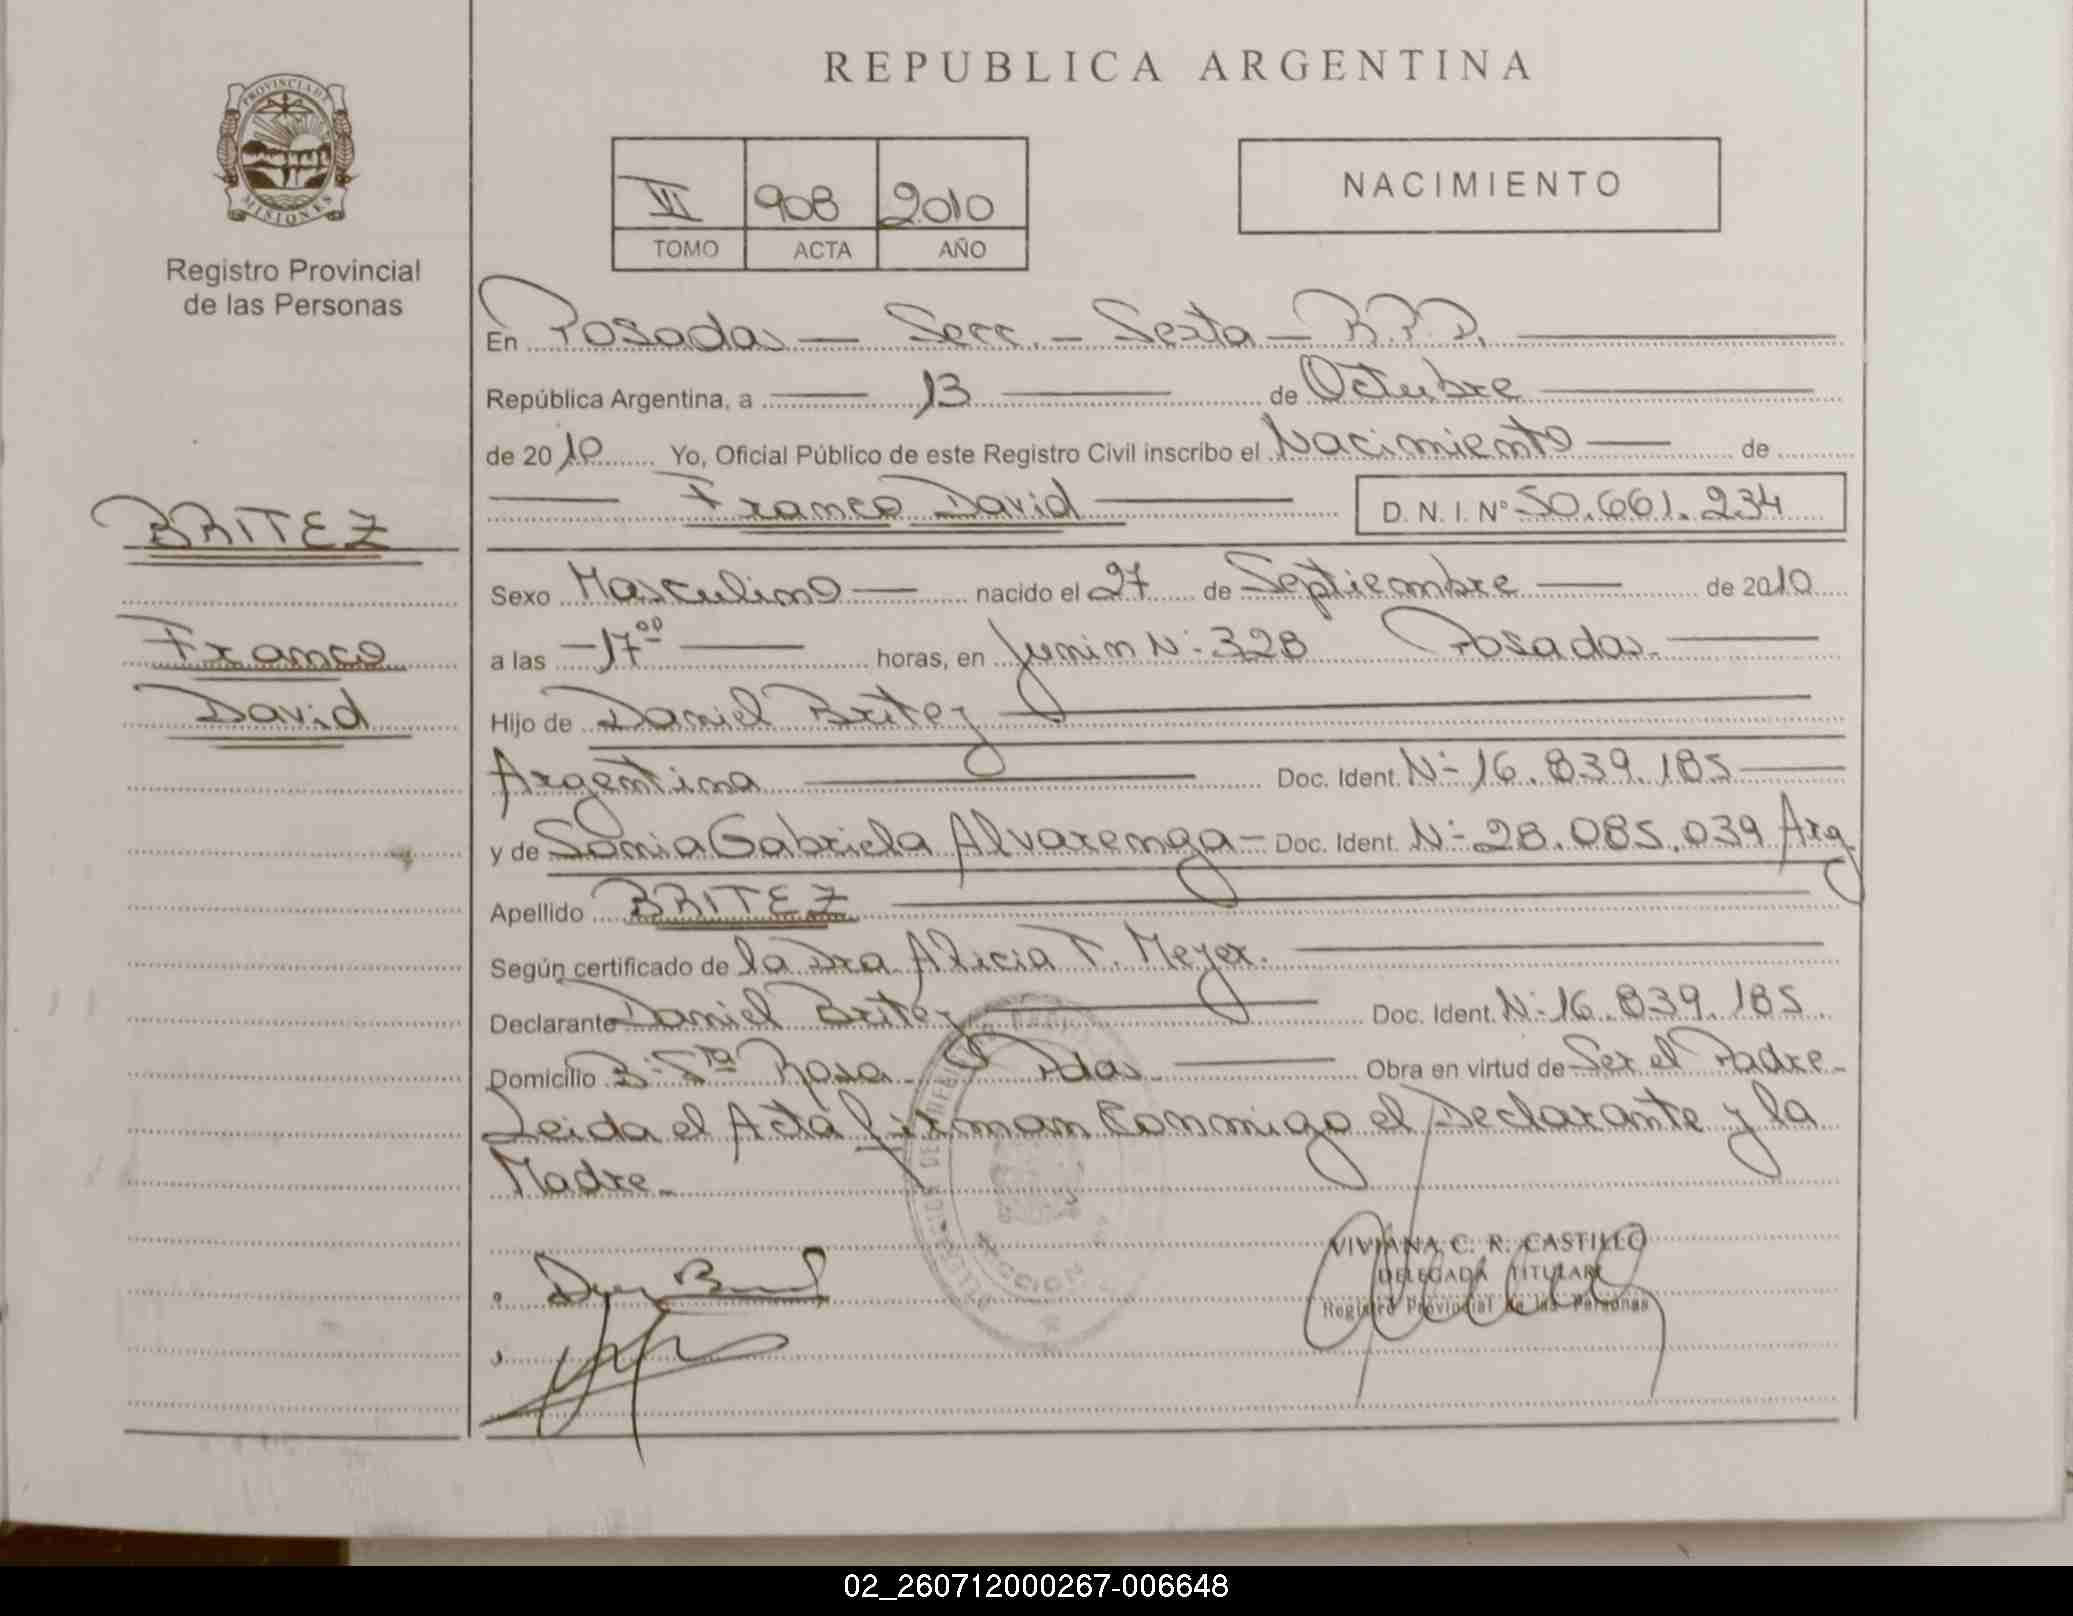 REPUBLICA ARGENTINA
PROVINCIA DE
MISIONES
Registro Provincial
de las Personas
VI 908 2010
TOMO ACTA AÑO
NACIMIENTO
En Posadas — Secc. — Sexta — R.P.P.
República Argentina, a — 13 — de Octubre
de 2010 Yo, Oficial Público de este Registro Civil inscribo el Nacimiento — de
Franco David D. N. I. Nº 50.661.234
BRITEZ
Franco
David
Sexo Masculino — nacido el 27 de Septiembre — de 2010
a las -17⁰⁰ — horas, en Junin Nº 328 Posadas. —
Hijo de Daniel Britez
Argentina — Doc. Ident. Nº 16.839.185 —
y de Sonia Gabriela Alvarenga — Doc. Ident. Nº 28.085.039 Arg
Apellido BRITEZ
Según certificado de la Dra Alicia F. Meyer.
Declarante Daniel Britez — Doc. Ident. Nº 16.839.185
Domicilio Bº Sta Rosa - Pdas — Obra en virtud de Ser el Padre.
Leida el Acta firman conmigo el Declarante y la
Madre.
SECCION
VIVIANA C. R. CASTILLO
DELEGADA TITULAR
Registro Provincial de las Personas
02_260712000267-006648